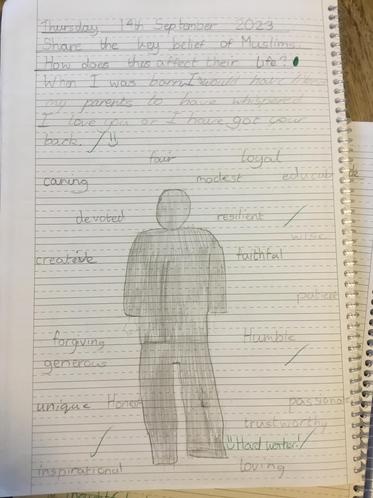 Thursday 14th September 2023
Share the key belief of Muslims.
How does this affect their life?
When I was born I would have liked
my parents to have whispered
I love you or I have got your
back.
fair loyal
caring modest
devoted resilient
wise
creative faithful
patient
forgiving Humble
generous
unique Honest passionate
trustworthy
Hard worker!
inspirational loving